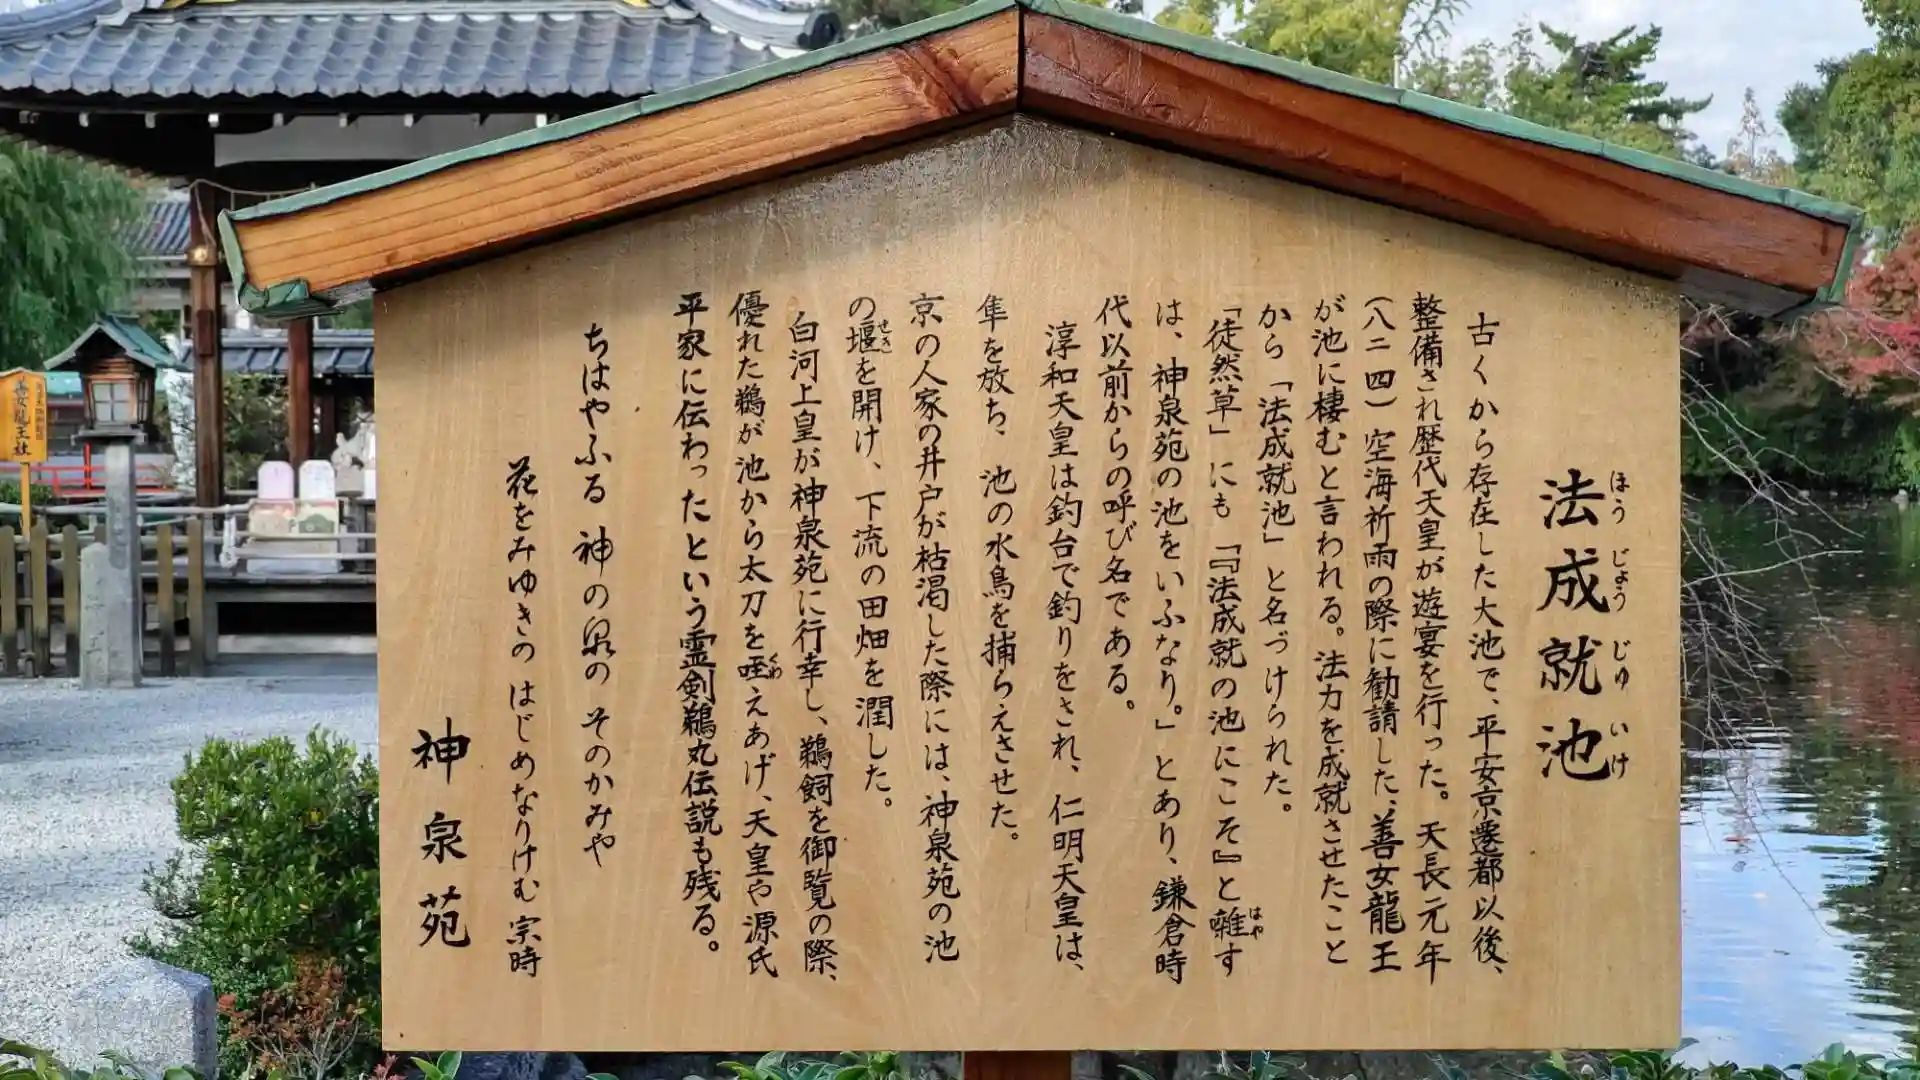 法成就池
ほうじょうじゅいけ
古くから存在した大池で、平安京遷都以後、
整備され歴代天皇が遊宴を行った。天長元年
(八二四)空海祈雨の際に勧請した、善女龍王
が池に棲むと言われる。法力を成就させたこと
から「法成就池」と名づけられた。
「徒然草」にも『「法成就の池にこそ』と囃す
はや
は、神泉苑の池をいふなり。」とあり、鎌倉時
代以前からの呼び名である。
淳和天皇は釣台で釣りをされ、仁明天皇は、
隼を放ち、池の水鳥を捕らえさせた。
京の人家の井戸が枯渇した際には、神泉苑の池
の堰を開け、下流の田畑を潤した。
せき
白河上皇が神泉苑に行幸し、鵜飼を御覧の際、
優れた鵜が池から太刀を咥えあげ、天皇や源氏
くわ
平家に伝わったという霊剣鵜丸伝説も残る。
ちはやふる 神の泉の そのかみや
花をみゆきの はじめなりけむ 宗時
神泉苑
善女龍王社